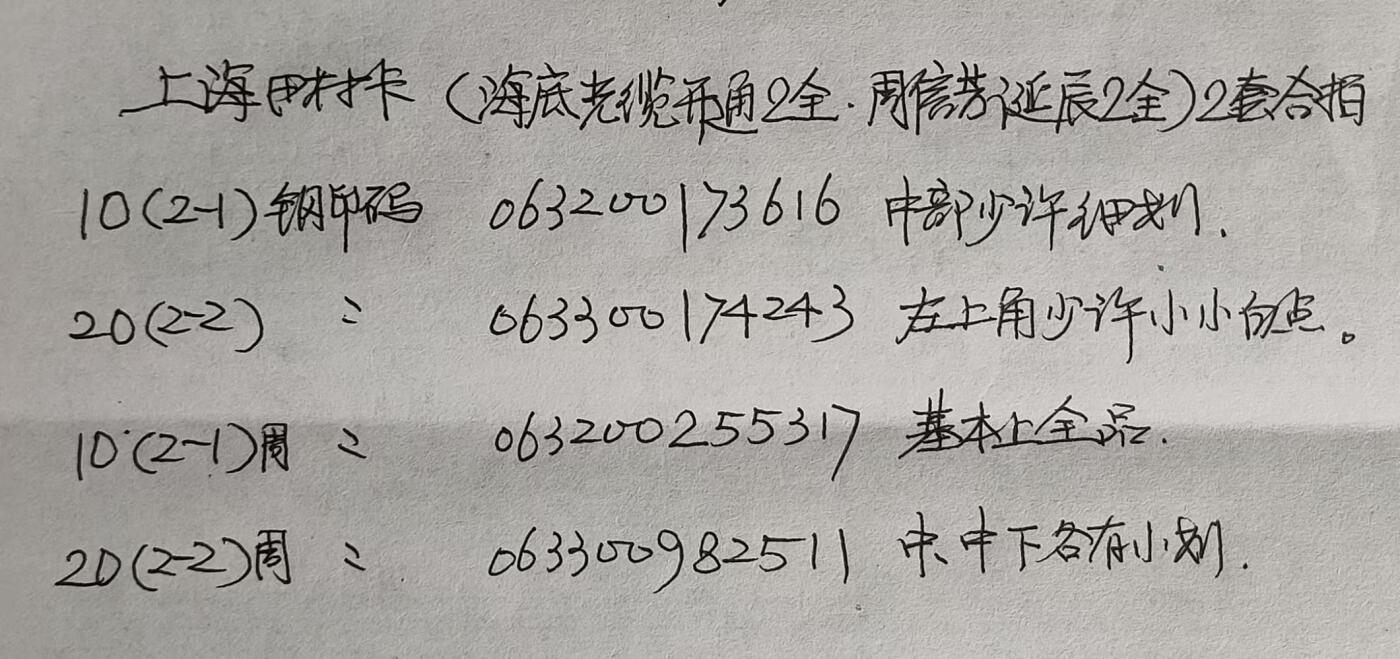 上海田村卡(海底光缆开通2全.周信芳诞辰2全)2套合拍
10(2-1)钢印码 063200173616 中部少许细划.
20(2-2) 〃 063300174243 左上角少许小小白点。
10(2-1)周 〃 063200255317 基本上全品.
20(2-2)周 〃 063300982511 中、中下各有小划.